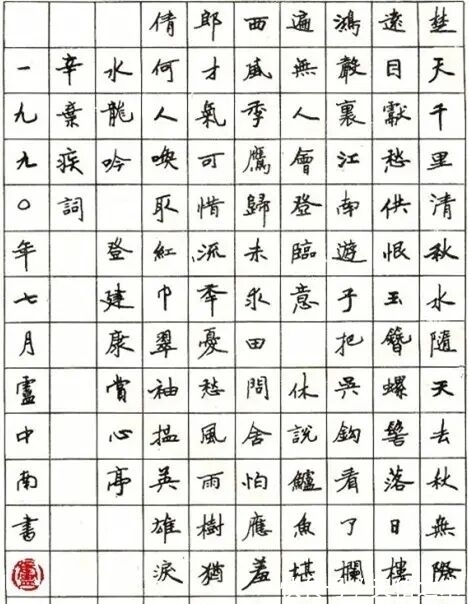 楚天千里清秋水隨天去秋無際
遠目獻愁供恨玉簪螺髻落日樓
鴻聲裏江南遊子把吳鈎看了欄
遍無人會登臨意 休說鱸魚堪
西風季鷹歸未求田問舍怕應羞
郎才氣可惜流年憂愁風雨樹猶
倩何人喚取紅巾翠袖揾英雄淚
水龍吟 登建康賞心亭
辛棄疾詞
一九九〇年七月盧中南書